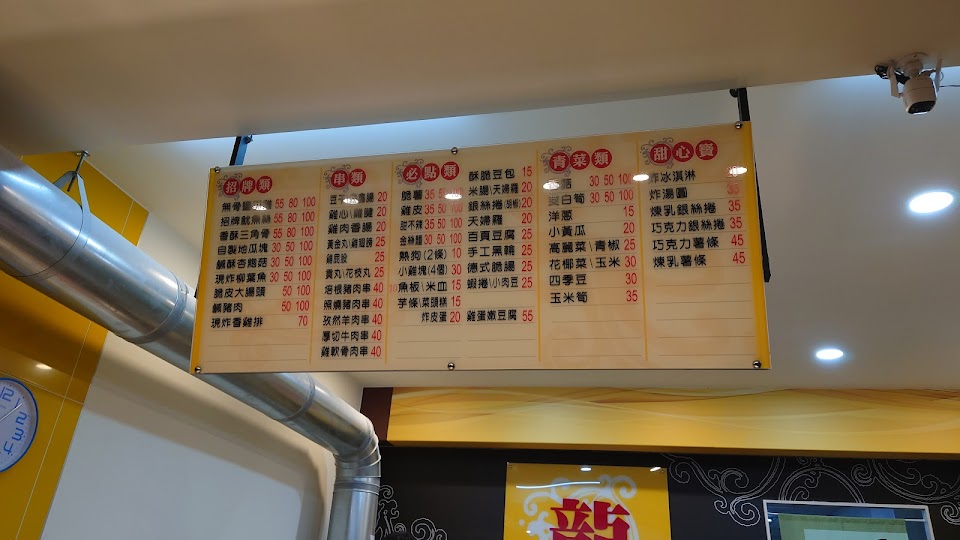 招牌類
無骨鹽酥雞 55 80 100
招牌魷魚絲 55 80 100
香酥三角骨 55 80 100
自製地瓜塊 30 50 100
鹹酥杏鮑菇 30 50 100
現炸柳葉魚 30 50 100
脆皮大腸頭 50 100
鹹豬肉 50 100
現炸香雞排 70
串類
20
雞心\雞腱 20
雞肉香腸 20
黃金丸\雞翅膀 25
雞屁股 25
貢丸\花枝丸 25
培根豬肉串 40
照燒豬肉串 40
孜然羊肉串 40
厚切牛肉串 40
雞軟骨肉串 40
必點類
脆薯 35 50 100
雞皮 35 50 100
甜不辣 35 50 100
金絲麵 30 50 100
熱狗(2條) 10
小雞塊(4個) 30
魚板\米血 15
芋條\菜頭粿 15
炸皮蛋 20
酥脆豆包 15
米腸\天婦羅 20
銀絲捲 20
天婦羅 20
百頁豆腐 25
手工黑輪 25
德式脆腸 25
蝦捲\小肉豆 25
雞蛋嫩豆腐 55
青菜類
30 50 100
茭白筍 30 50 100
洋蔥 15
小黃瓜 20
高麗菜\青椒 25
花椰菜\玉米 30
四季豆 30
玉米筍 35
甜心寶
炸冰淇淋
炸湯圓 35
煉乳銀絲捲 35
巧克力銀絲捲 35
巧克力薯條 45
煉乳薯條 45
龍